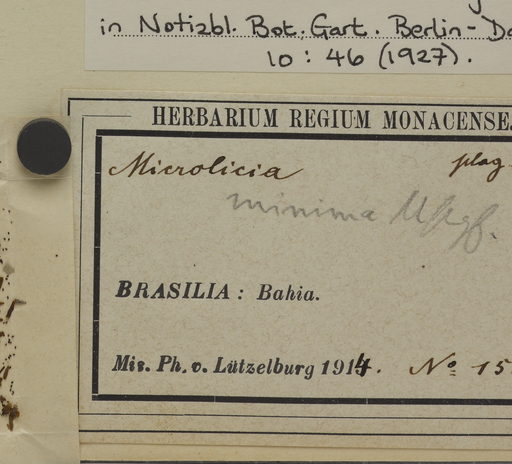 in Notizbl. Bot. Gart. Berlin-Da
10 : 46 (1927).
HERBARIUM REGIUM MONACENSE.
Microlicia plag.
minima Mgf.
BRASILIA : Bahia.
Mis. Ph. v. Lützelburg 1914. No 15